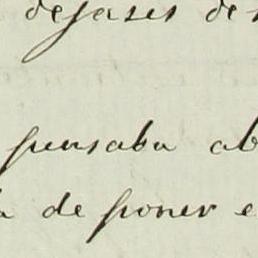 dejases de
pensaba ab
de poner e